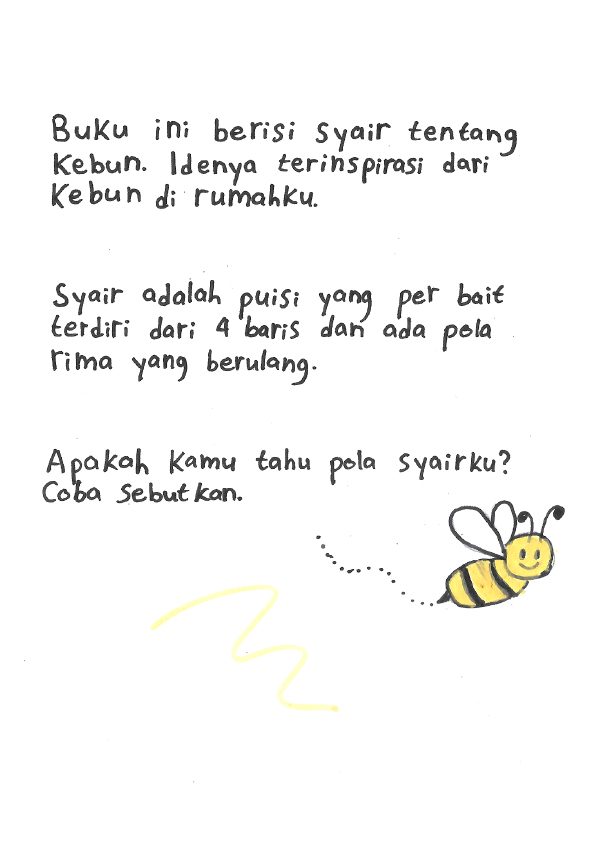 Buku ini berisi syair tentang
kebun. Idenya terinspirasi dari
kebun di rumahku.
Syair adalah puisi yang per bait
terdiri dari 4 baris dan ada pola
rima yang berulang.
Apakah kamu tahu pola syairku?
Coba sebutkan.